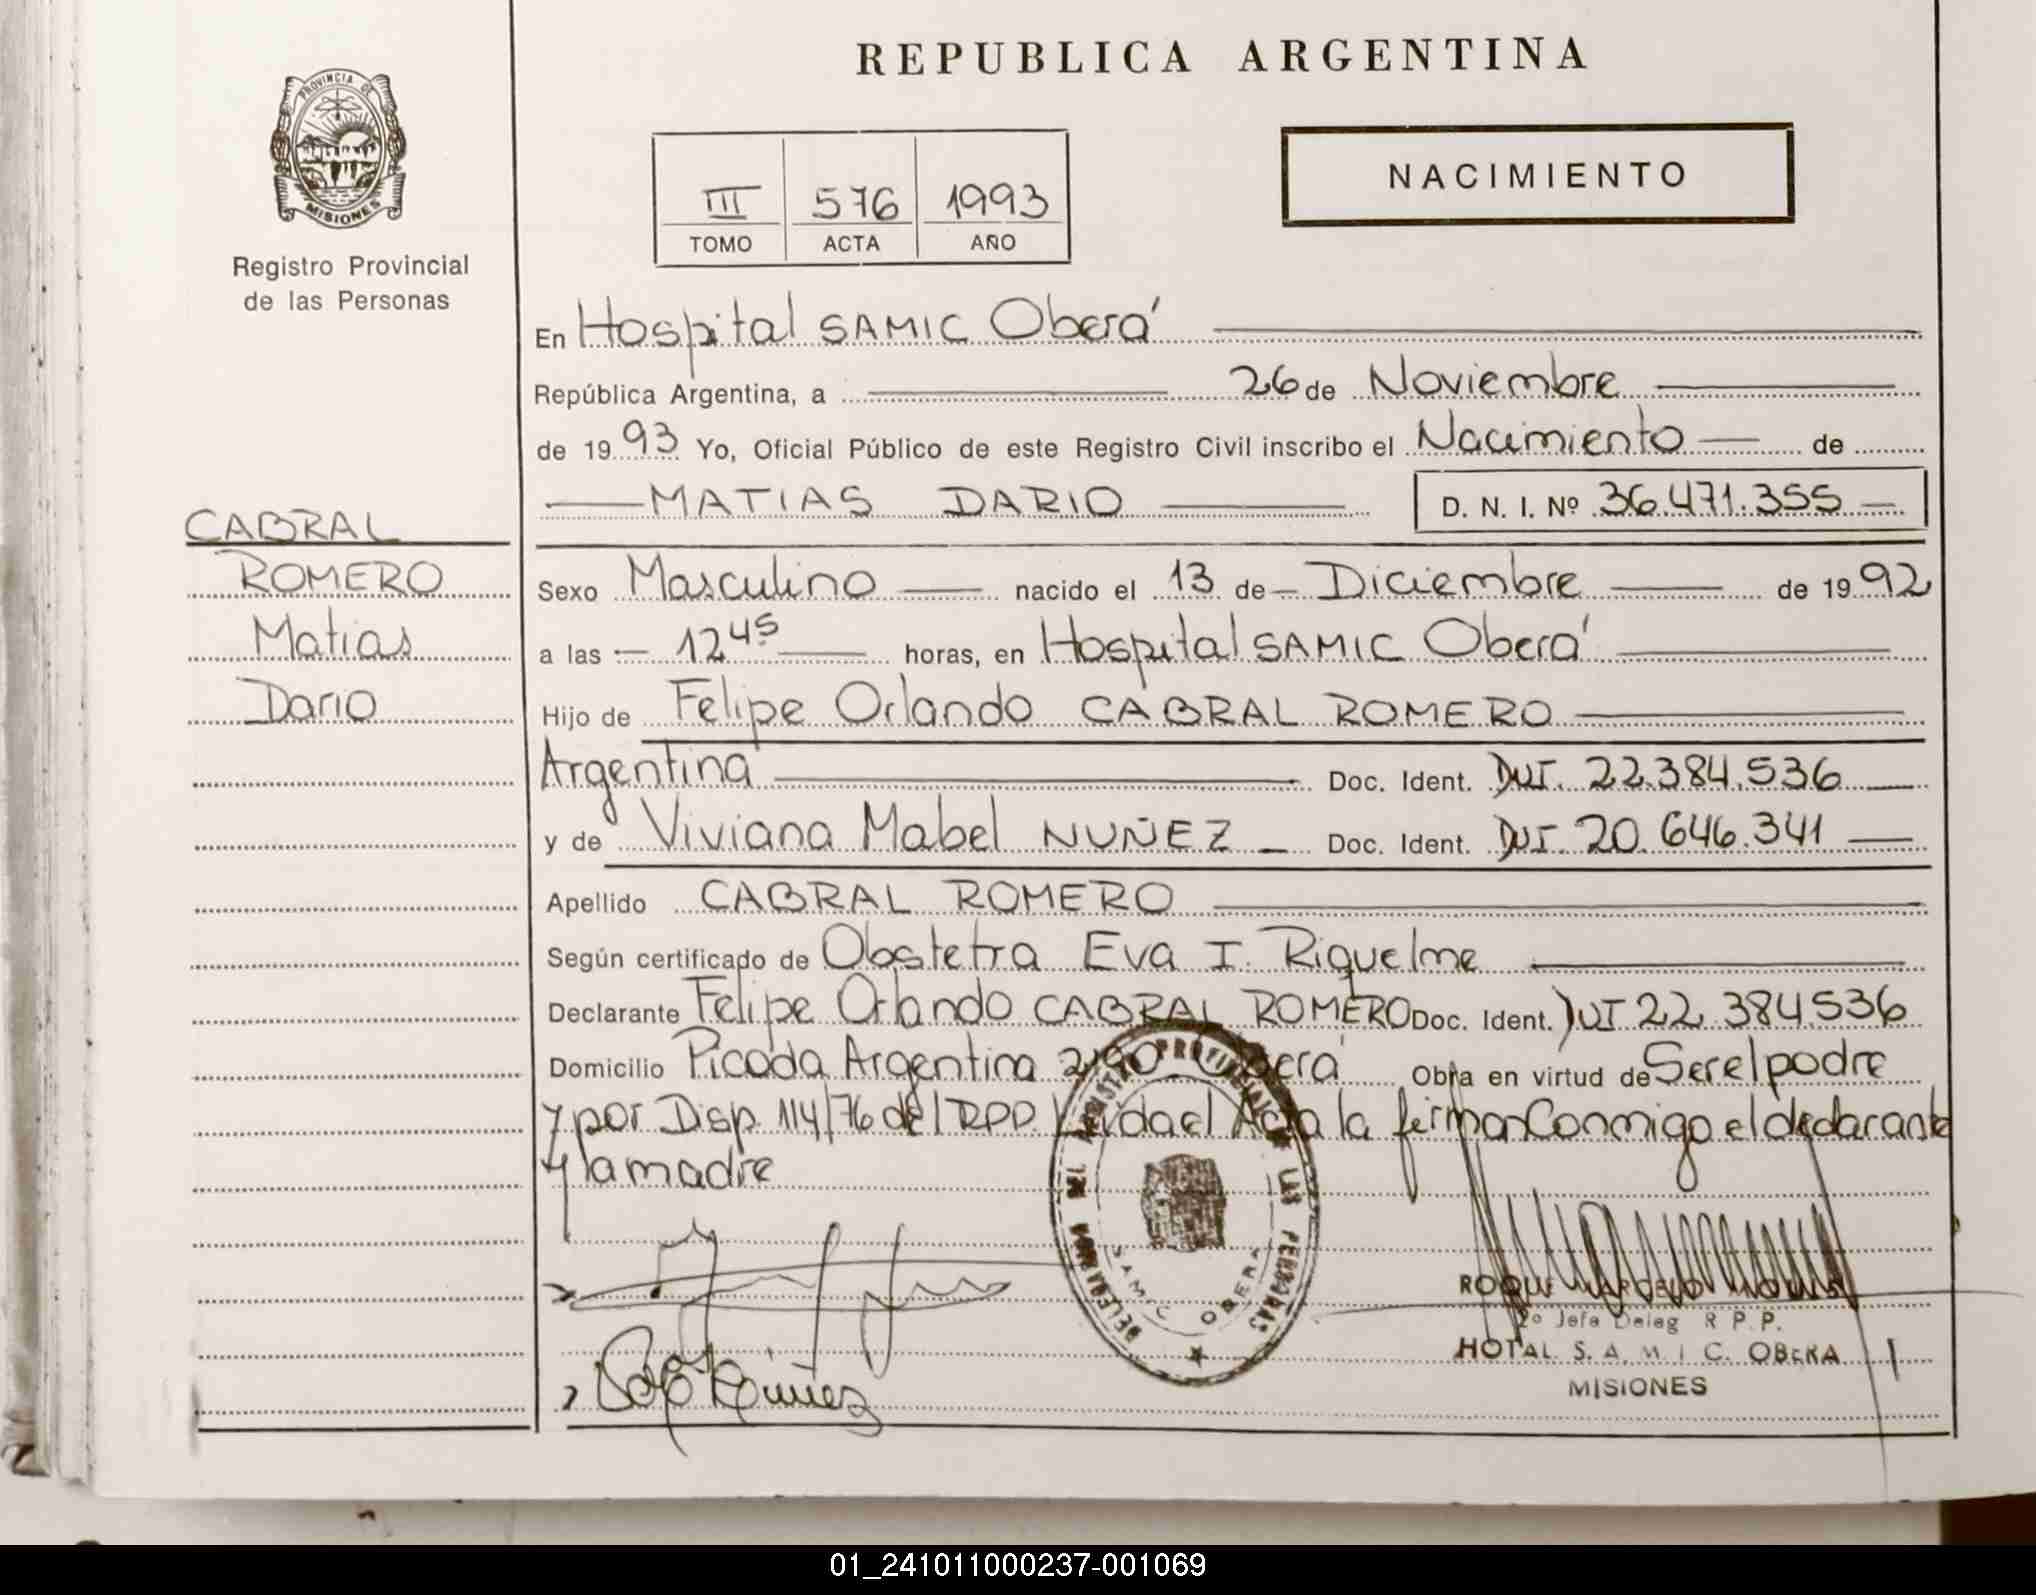 REPUBLICA ARGENTINA
PROVINCIA DE
MISIONES
Registro Provincial
de las Personas
III 576 1993
TOMO ACTA AÑO
NACIMIENTO
En Hospital SAMIC Oberá
República Argentina, a 26 de Noviembre
de 1993 Yo, Oficial Público de este Registro Civil inscribo el Nacimiento de
MATIAS DARIO D. N. I. Nº 36.471.355
CABRAL
ROMERO
Matias
Dario
Sexo Masculino nacido el 13 de Diciembre de 1992
a las 12 45 horas, en Hospital SAMIC Oberá
Hijo de Felipe Orlando CABRAL ROMERO
Argentina Doc. Ident. DNI. 22.384.536
y de Viviana Mabel NUÑEZ Doc. Ident. DNI. 20.646.341
Apellido CABRAL ROMERO
Según certificado de Obstetra Eva I. Riquelme
Declarante Felipe Orlando CABRAL ROMERO Doc. Ident. DNI 22.384.536
Domicilio Picada Argentina Oberá Obra en virtud de Ser el padre
y por Disp. 114/76 del RPP. Leida el Acta la firman Conmigo el declarante
y la madre
DELEGACION DEL REGISTRO PROVINCIAL DE LAS PERSONAS
SAMIC OBERA
ROQUE MARCELO
2º Jefe Deleg R.P.P.
HOTAL. S. A. M. I C. OBERA
MISIONES
01_241011000237-001069